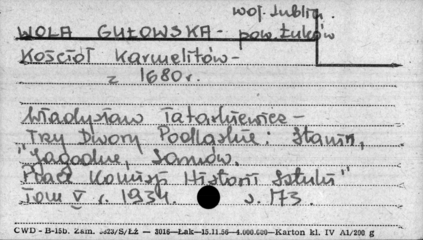 woj. Lublin.
WOLA GUŁOWSKA - pow. Łuków
Kościół Karmelitów -
z 1680 r.
Władysław Tatarkiewicz -
"Trzy Dwory Podlaskie: Stanin,
Jagodne, Sarnów.
Prace Komisji Historii Sztuki"
Tom V r. 1934. s. 173.
CWD - B-15b. Zam. 3823/S/ŁŻ — 3016—Łak—15.11.56—4.000.000—Karton kl. IV A1/200 g